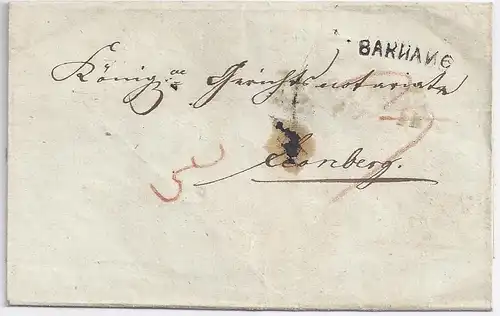 BAKNANG
Königl. Gerichtsnotariate
Leonberg.
5